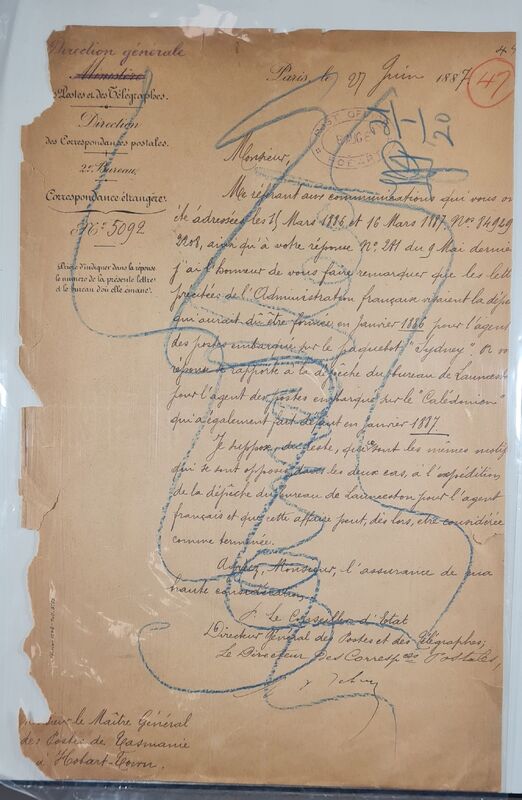 Direction générale
Ministère
Postes et des Télégraphes.
Direction
des Correspondances postales.
2e Bureau.
Correspondance étrangère.
No 5092
Prière d'indiquer dans la réponse
le numéro de la présente lettre
et le bureau d'où elle émane.
Paris, le 27 Juin 1887
47
POST OFFICE
HOBART
21
1
20
Monsieur,
Me référant aux communications qui vous on
été adressées les 15 Mars 1886 et 16 Mars 1887, Nos 84929
2208, ainsi qu'à votre réponse No 241 du 9 Mai dernier
j'ai l'honneur de vous faire remarquer que les lett
précitées de l'Administration française visaient la dépê
qui aurait dû être formée, en Janvier 1886 pour l'agent
des postes embarqué sur le paquebot "Sydney". Or v
réponse se rapporte à la dépêche du bureau de Launcest
pour l'agent des postes embarqué sur le "Calédonien"
qui a également fait défaut en janvier 1887.
Je suppose, du reste, que ce sont les mêmes motif
qui se sont opposés, dans les deux cas, à l'expédition
de la dépêche du bureau de Launceston pour l'agent
français et que cette affaire peut, dès lors, être considérée
comme terminée.
Agréez, Monsieur, l'assurance de ma
haute considération,
P. Le Conseiller d'Etat
Directeur Général des Postes et des Télégraphes;
Le Directeur des Correspces Postales,
Monsieur le Maître Général
des Postes de Tasmanie
à Hobart-Town.